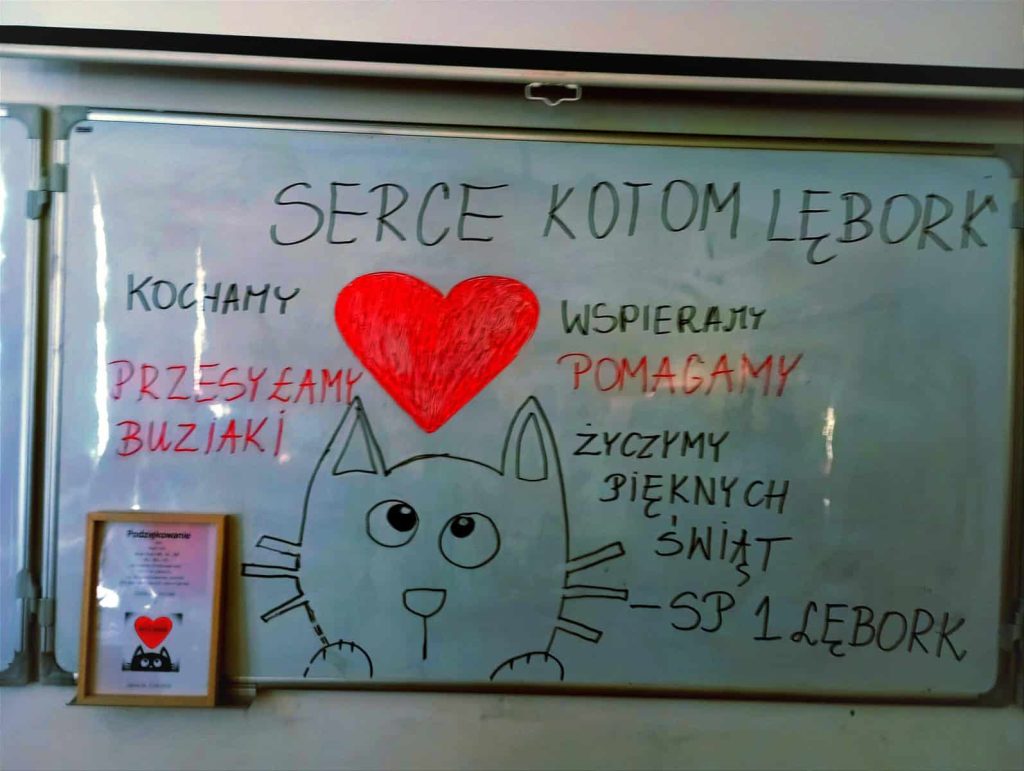 SERCE KOTOM LĘBORK
KOCHAMY
PRZESYŁAMY
BUZIAKI
WSPIERAMY
POMAGAMY
ŻYCZYMY
PIĘKNYCH
ŚWIĄT
-SP 1 LĘBORK
Podziękowanie